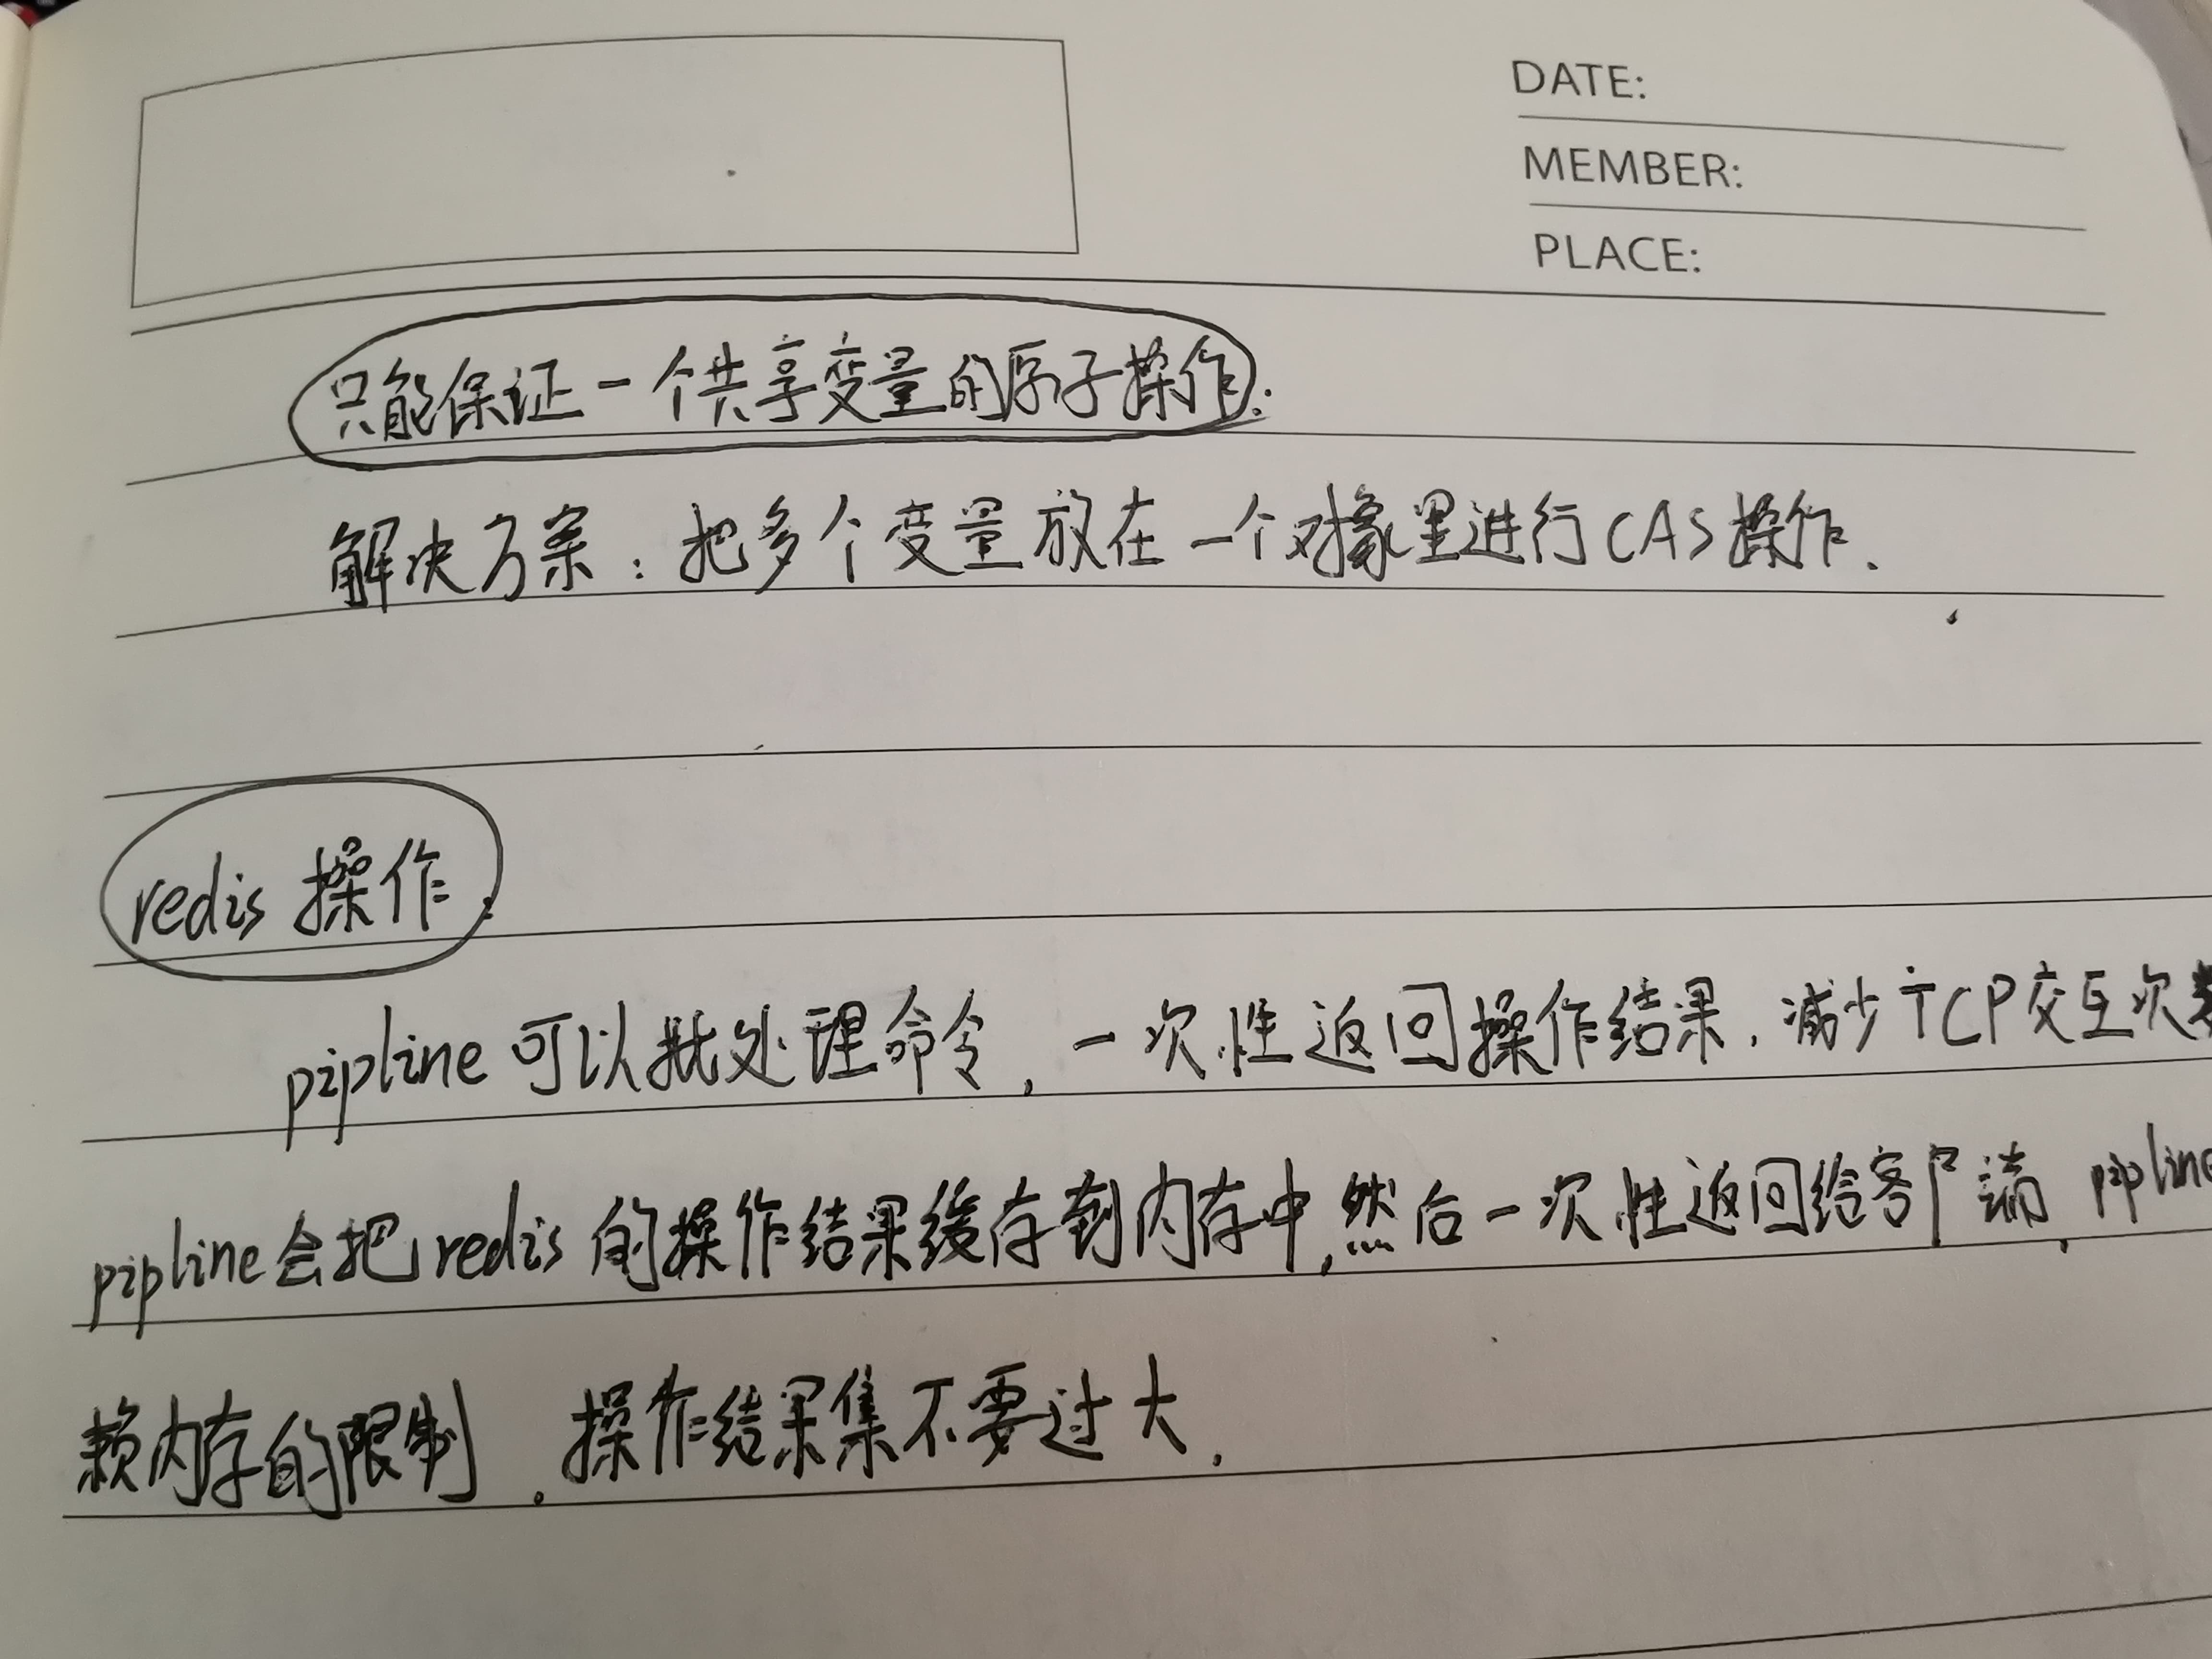 DATE:
MEMBER:
PLACE:
只能保证一个共享变量的原子操作:
解决方案:把多个变量放在一个对象里进行CAS操作.
redis 操作:
pipline可以批处理命令,一次性返回操作结果,减少TCP交互次数
pipline会把redis的操作结果缓存到内存中,然后一次性返回给客户端,pipline
赖内存的限制。操作结果集不要过大.